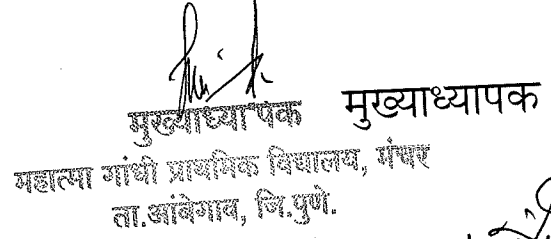 मुख्याध्यापक मुख्याध्यापक
महात्मा गांधी प्राथमिक विद्यालय, मंचर
ता.आंबेगाव, जि.पुणे.